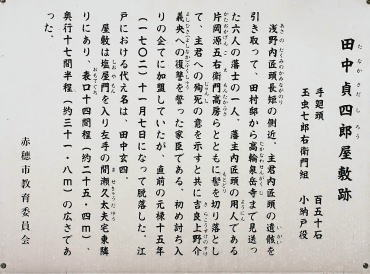 田中貞四郎屋敷跡
手廻頭　百五十石
玉虫七郎右衛門組　小納戸役
浅野内匠頭長矩の側近。主君内匠頭の遺骸を
引き取って、田村邸から高輪泉岳寺まで見送っ
た六人の藩士の一人。藩主内匠頭の用人である
片岡源五右衛門高房らとともに髻を切り落とし
て、主君への殉死の意を示すと共に吉良上野介
義央への復讐を誓った家臣である。初め討ち入
りの企てに加盟していたが、直前の元禄十五年
（一七〇二）十一月七日になって脱落した。江
戸における代え名は、田中玄四。
屋敷は塩屋門を入り左手の間瀬久太夫宅東隣
りにあり、表口十四間程（約二十五・四ｍ）、
奥行十七間半程（約三十一・八ｍ）の広さであ
った。
赤穂市教育委員会